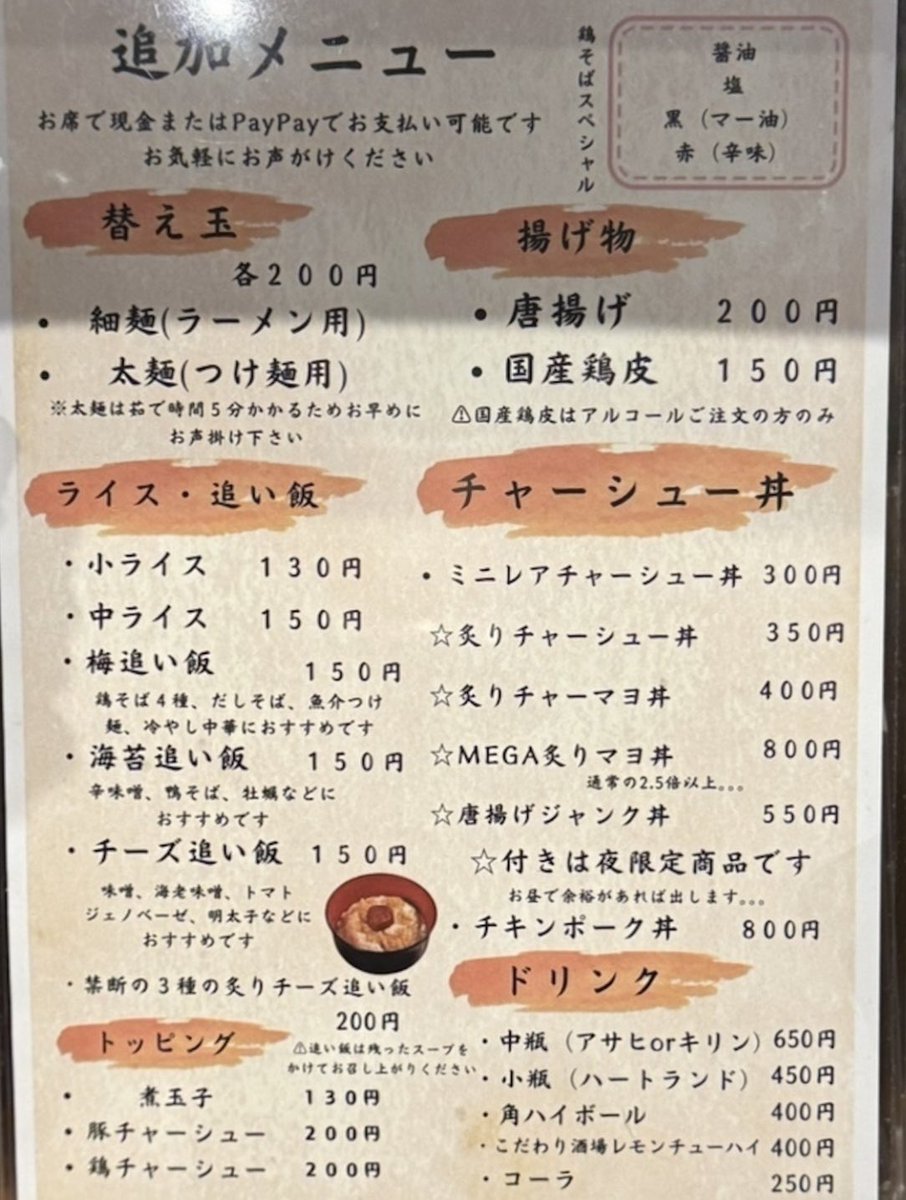 追加メニュー
お席で現金またはPayPayでお支払い可能です
お気軽にお声がけください
鶏そばスペシャル
醬油
塩
黒（マー油）
赤（辛味）
替え玉
各200円
・ 細麺(ラーメン用)
・ 太麺(つけ麺用)
※太麺は茹で時間5分かかるためお早めに
お声掛け下さい
揚げ物
・唐揚げ 200円
・国産鶏皮 150円
⚠国産鶏皮はアルコールご注文の方のみ
ライス・追い飯
・小ライス 130円
・中ライス 150円
・梅追い飯 150円
鶏そば4種、だしそば、魚介つけ
麺、冷やし中華におすすめです
・海苔追い飯 150円
辛味噌、鴨そば、牡蠣などに
おすすめです
・チーズ追い飯 150円
味噌、海老味噌、トマト
ジェノベーゼ、明太子などに
おすすめです
・禁断の3種の炙りチーズ追い飯
200円
⚠追い飯は残ったスープを
かけてお召し上がりください
チャーシュー丼
・ミニレアチャーシュー丼 300円
☆炙りチャーシュー丼 350円
☆炙りチャーマヨ丼 400円
☆MEGA炙りマヨ丼 800円
通常の2.5倍以上。。。
☆唐揚げジャンク丼 550円
☆付きは夜限定商品です
お昼で余裕があれば出します。。。
・チキンポーク丼 800円
トッピング
・ 煮玉子 130円
・豚チャーシュー 200円
・鶏チャーシュー 200円
ドリンク
・中瓶（アサヒorキリン）650円
・小瓶（ハートランド）450円
・角ハイボール 400円
・こだわり酒場レモンチューハイ 400円
・コーラ 250円